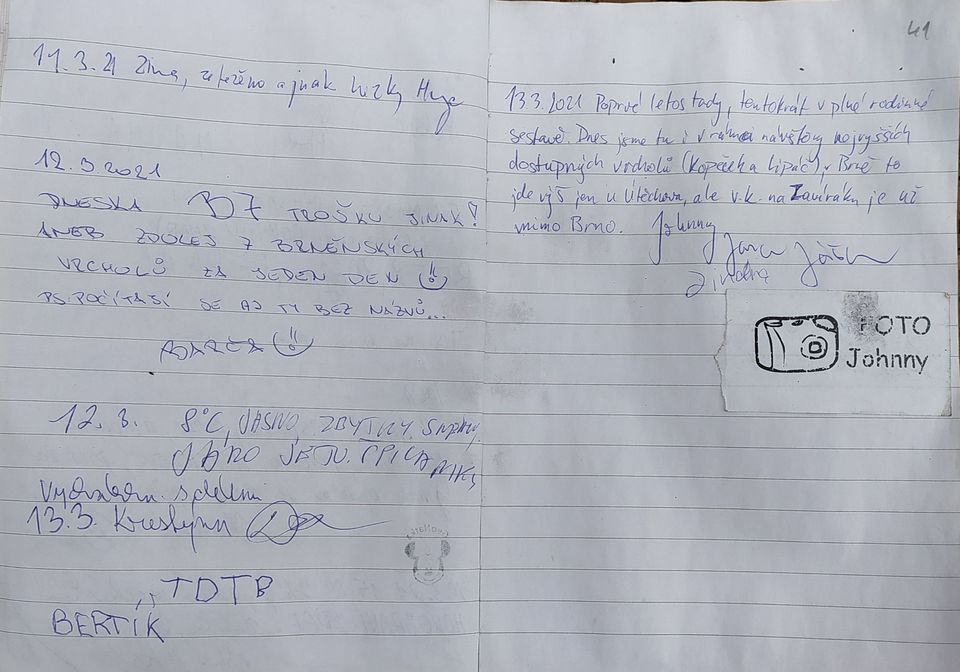 11.3.21 Zima, zataženo a jinak hezky
12.3.2021
DNESKA B7 TROŠKU JINAK!
ANEB ZDOLEJ 7 BRNĚNSKÝCH
VRCHOLŮ ZA JEDEN DEN
PS. POČÍTAJÍ SE AJ TY BEZ NÁZVŮ...
12.3. 8°C, JASNO, ZBYTKY
JARO JE TU.
13.3.
TDTB
BERTÍK
41
13.3.2021 Poprvé letos tady, tentokrát v plné rodinné
sestavě. Dnes jsme tu i v rámci návštěvy nejvyšších
dostupných vrcholů (Kopeček a Lipáč) v Brně to
jde výš jen u Útěchova, ale v.k. na Zavíráku je už
mimo Brno. Johnny
Jindra
FOTO
Johnny